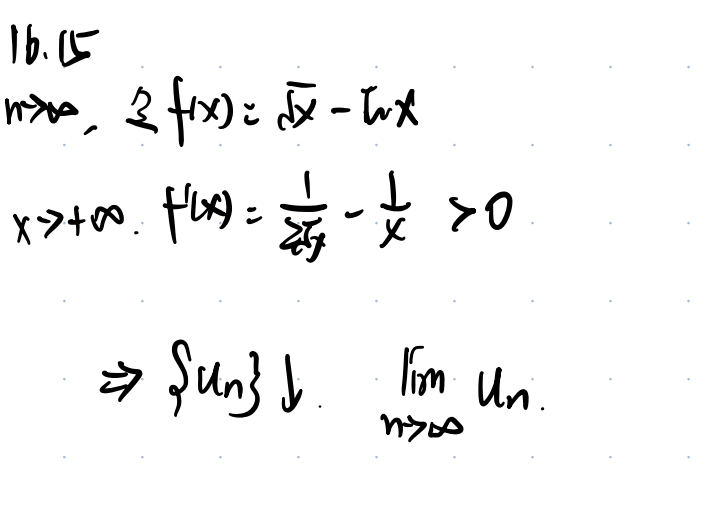 16.15
n→∞, 令 f(x) = √x - ln x
x→+∞. f'(x) = 1/(2√x) - 1/x > 0
⇒ {un}↓. lim n→∞ un.